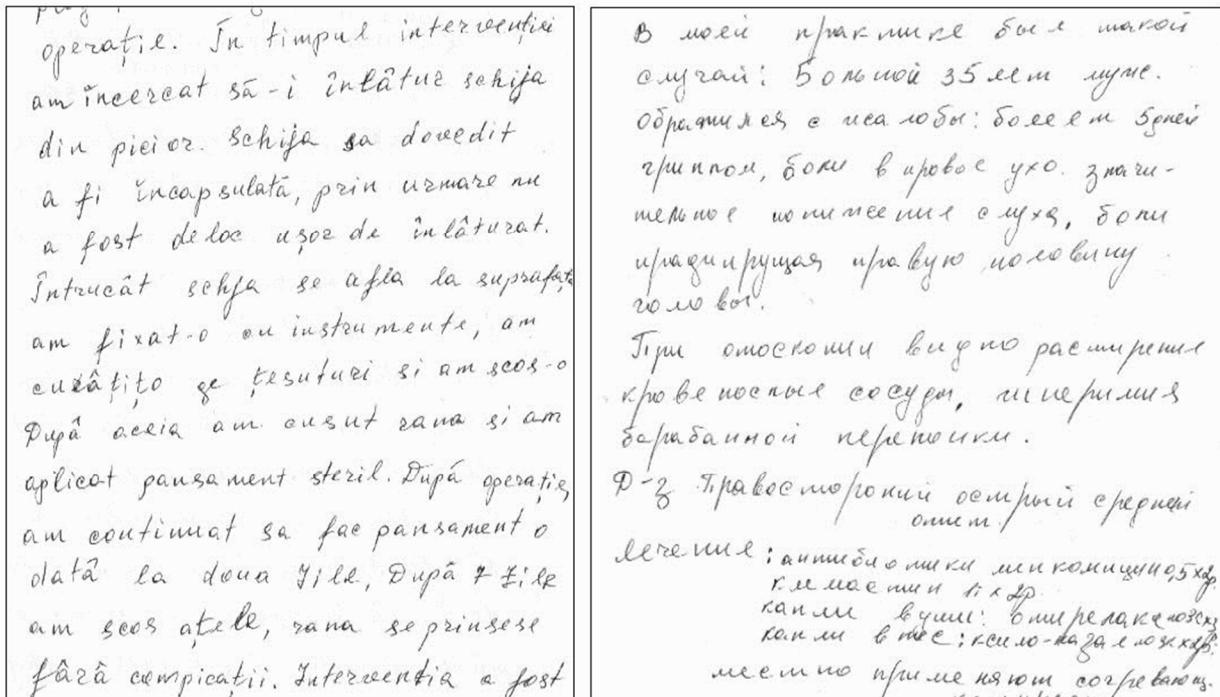 operație. În timpul intervenției
am încercat să-i înlâtur schija
din picior. Schija sa dovedit
a fi încapsulată, prin urmare nu
a fost deloc ușor de înlâturat.
Întrucât schja se afla la suprafață
am fixat-o cu instrumente, am
țesuturi si am scos-o
După aceia am cusut rana si am
aplicat pansament steril. După operație,
am continuat sa fac pansament o
datâ la doua zile, După 7 zile
am scos ațele, rana se prinsese
fârâ compicații. Interventia a fost
В моей практике был такой
случай: Больной 35 лет муж.
Обратился с жалобы: болеет 5 дней
гриппом, боли в правое ухо. значи-
тельное понижение слуха, боли
ирадиирущая правую половину
головы.
При отоскопии видно расширение
кровеносные сосуды, гиперимия
барабанной перепонки.
Д-з Правостороний острый средней
отит.
Лечение: антибиотики линкомицин 0,5 х 2р.
1т х 2р.
капли в уши: отирелакс
капли в нос: ксило-
местно применяют согревающ.